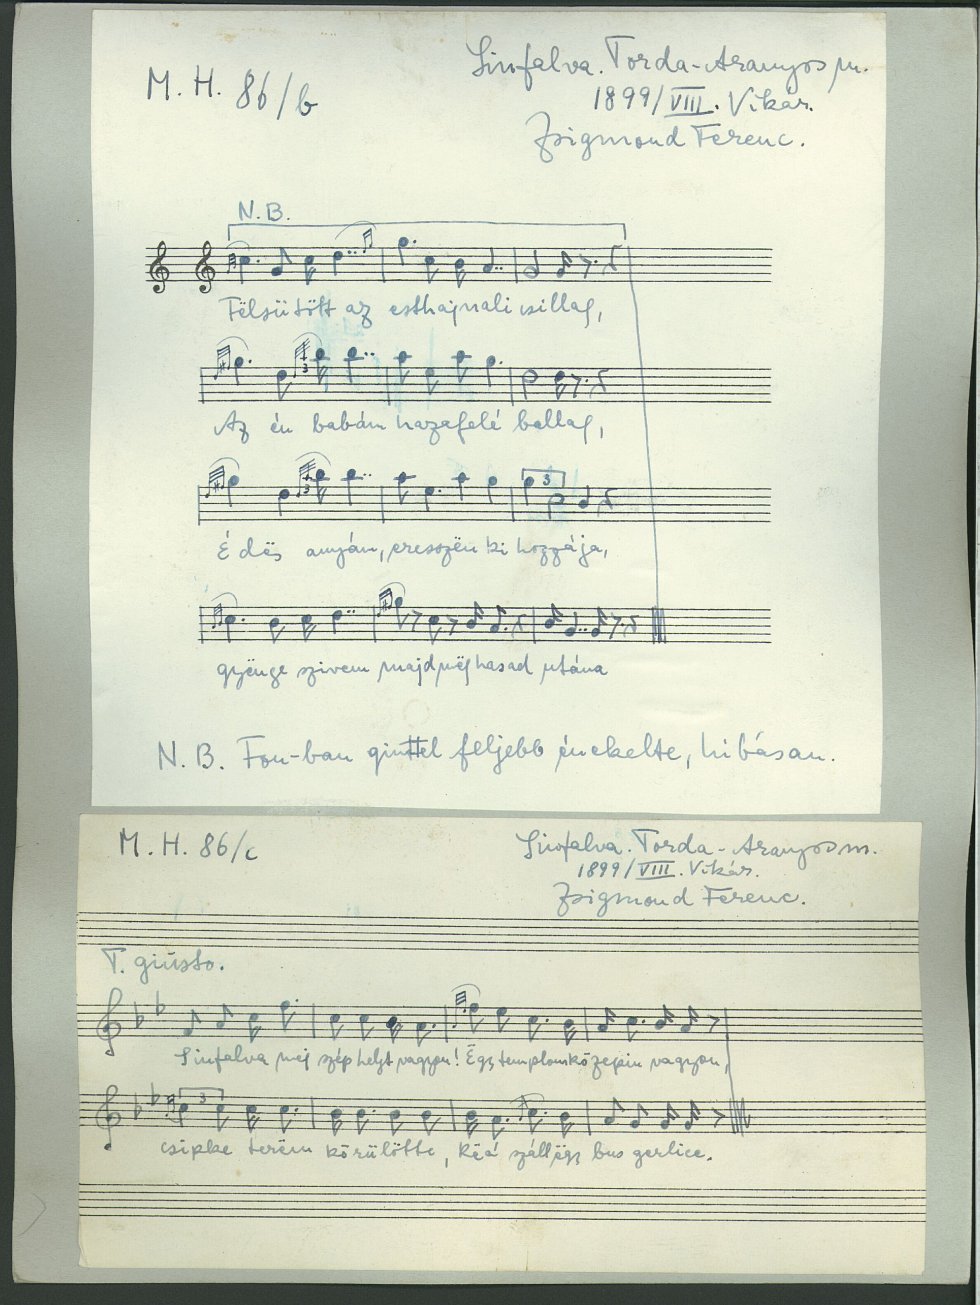 M. H. 86/b
Sinfalva. Torda-Aranyos m.
1899/VIII. Vikár.
Zsigmond Ferenc.
N.B.
Fëlsütött az esthajnali csillag,
3
Az én babám hazafelé ballag,
3 3
Édës anyám, eresszën ki hozzája,
gyënge szivem majd mëghasad utána
N. B. Fon-ban quinttel feljebb énekelte, hibásan.
M. H. 86/c
Sinfalva. Torda-Aranyos m.
1899/VIII. Vikár.
Zsigmond Ferenc.
T. giusto.
Sinfalva mëj szép helyt vagyon! Ëgy templom közepin vagyon,
3
csipke terëm körülötte, száll ëgy bus gerlice.